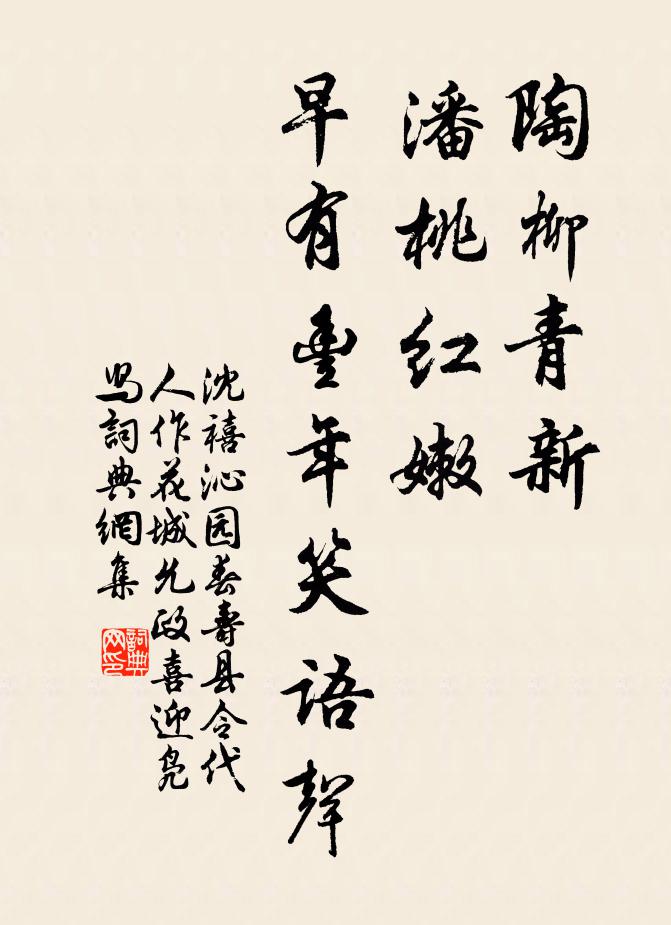 陶柳青新
潘桃红嫩
早有豐年笑语聲
沈禧沁园春寿县令代
人作花城允政喜迎凫
舄詞典網集
詞典
网印